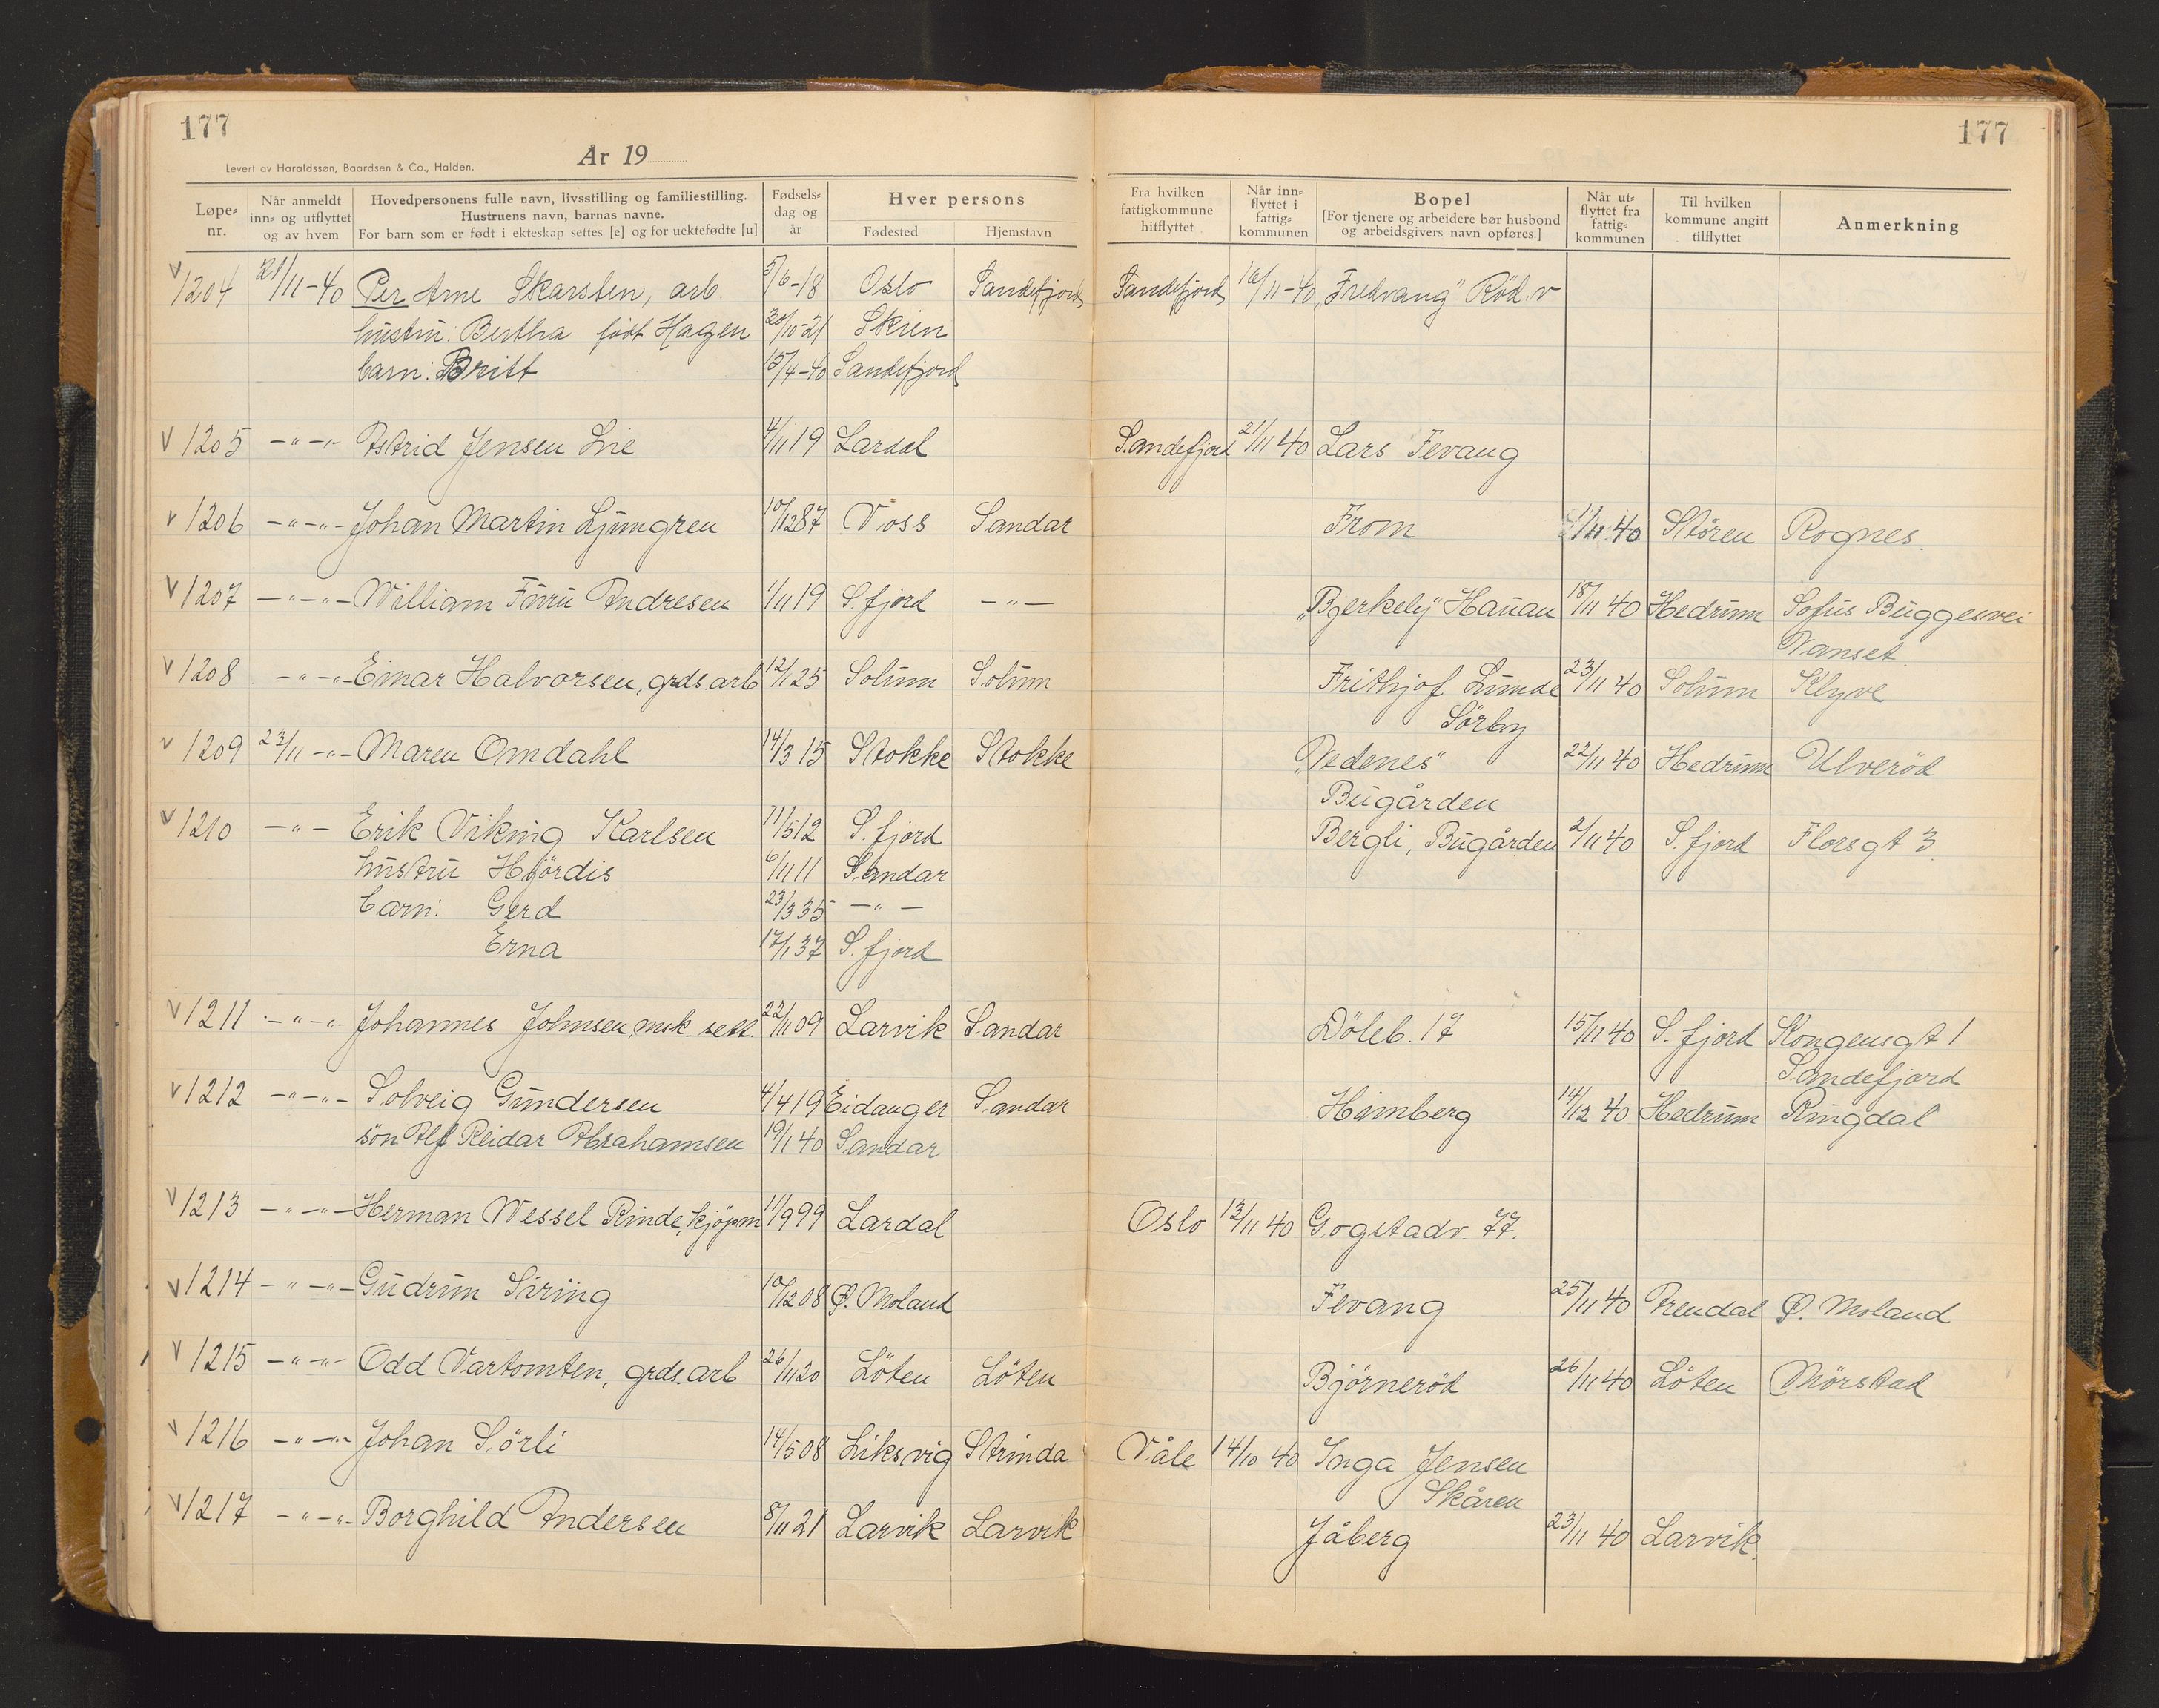 177
177
Levert av Haraldssøn, Baardsen & Co., Halden.
År 19
Løpe-nr.
Når anmeldt inn- og utflyttet og av hvem
Hovedpersonens fulle navn, livsstilling og familiestilling.
Hustruens navn, barnas navne.
For barn som er født i ekteskap settes [e] og for uektefødte [u]
Fødsels-dag og år
Hver persons
Fødested
Hjemstavn
Fra hvilken fattigkommune hitflyttet
Når inn-flyttet i fattig-kommunen
Bopel
[For tjenere og arbeidere bør husbond og arbeidsgivers navn opføres.]
Når ut-flyttet fra fattig-kommunen
Til hvilken kommune angitt tilflyttet
Anmerkning
V 1204 21/11-40 Per Arne Skarsten, arb. 5/6-18 Oslo Sandefjord Sandefjord 16/11-40 "Fredvang" Röd.v
hustru: Bertha född Hagen 30/10-21 Skien
barn: Britt 15/4-40 Sandefjord
V 1205 -"-"- Astrid Jensen Lie 4/11 19 Lardal Sandefjord 21/11 40 Lars Fevang
V 1206 -"-"- Johan Martin Ljungren 10/12 87 Voss Sandar From 1/11 40 Stören Rognes.
V 1207 -"-"- William Furu Andresen 1/11 19 S.fjord -"- "Bjerkely" Hauan 18/11 40 Hedrum Sofus Buggesvei
Nanset
V 1208 -"-"- Einar Halvorsen, grds.arb 12/1 25 Solum Solum Frithjof Lunde 23/11 40 Solum Klyve
Sörby
V 1209 23/11 -"- Maren Omdahl 14/3 15 Stokke Stokke "Nedenes" 22/11 40 Hedrum Ulveröd
Bugården
V 1210 -"- Erik Viking Karlsen 11/5 12 S.fjord Bergli, Bugården 2/11 40 S.fjord Florsgt 3.
hustru Hjördis 6/11 11 Sandar
barn: Gerd 23/3 35 -"-
Erna 17/1 37 S.fjord
V 1211 -"-"- Johannes Johnsen, msk.sett. 22/11 09 Larvik Sandar Döleb. 17 15/11 40 S.fjord Kongensgt 1
Sandefjord
V 1212 -"-"- Solveig Gundersen 4/4 19 Eidanger Sandar Himberg 14/12 40 Hedrum Ringdal
sön Alf Reidar Abrahamsen 19/1 40 Sandar
V 1213 -"-"- Herman Wessel Rinde, kjöpm 11/9 99 Lardal Oslo 13/11 40 Gogstadv. 77.
V 1214 -"-"- Gudrun Siring 10/12 08 Ø. Moland Fevang 25/11 40 Arendal Ø. Moland
V 1215 -"-"- Odd Vartomten, grds.arb 26/11 20 Löten Löten Björneröd 26/11 40 Löten Mörstad
V 1216 -"-"- Johan Sörli 14/5 08 Liksvig Strinda Våle 14/10 40 Inga Jensen
Skåren
V 1217 -"-"- Borghild Andersen 8/11 21 Larvik Larvik Jåberg 23/11 40 Larvik.